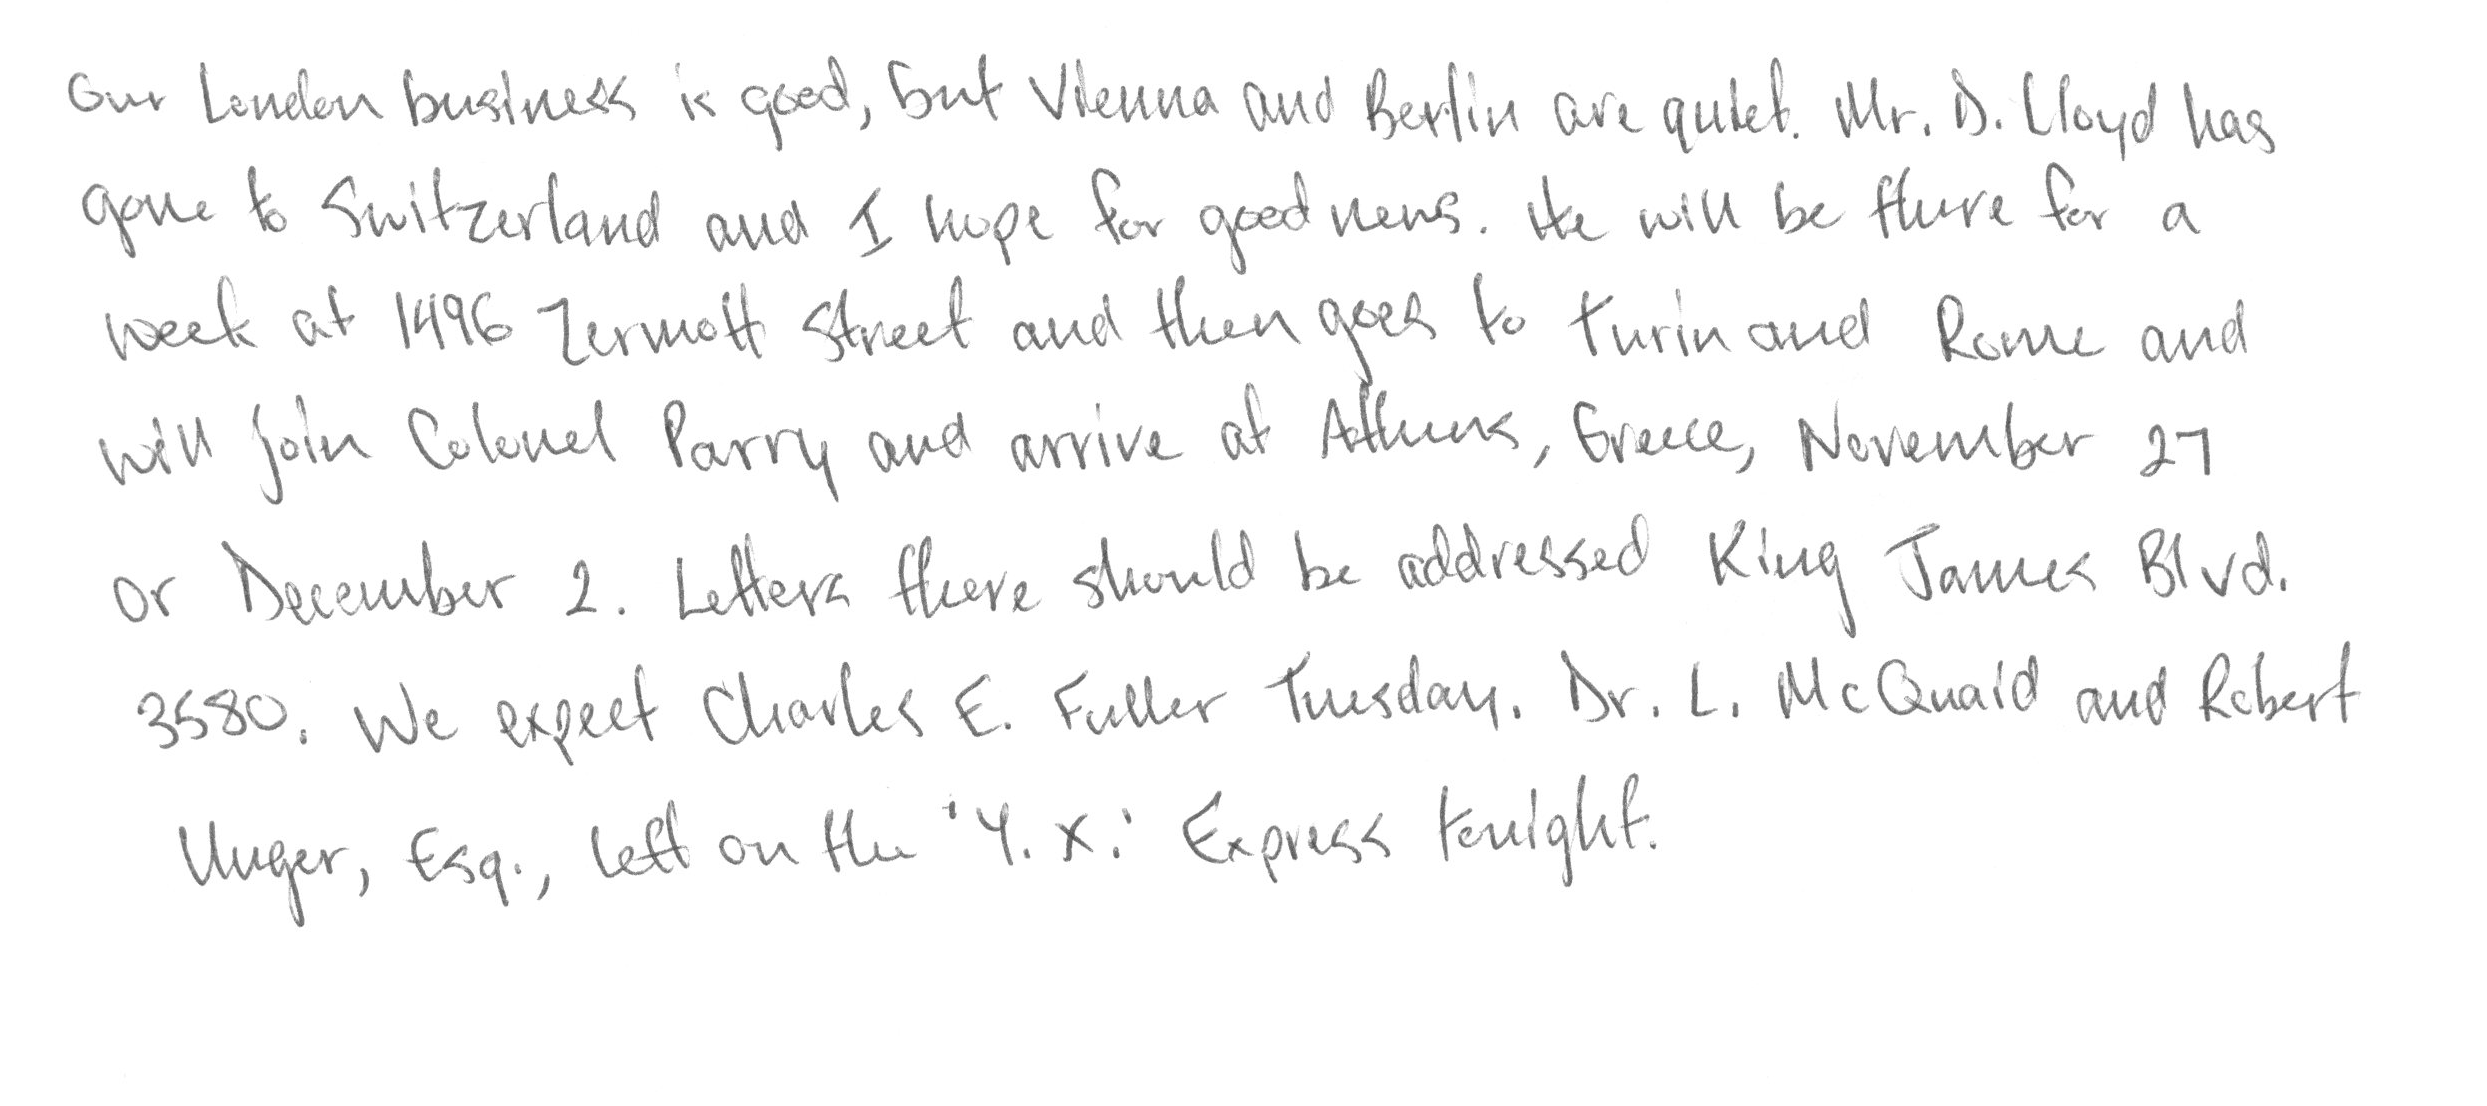 Our London business is good, but Vienna and Berlin are quiet. Mr. D. Lloyd has
gone to Switzerland and I hope for good news. He will be there for a
week at 1496 Zermott Street and then goes to Turin and Rome and
will join Colonel Parry and arrive at Athens, Greece, November 27
or December 2. Letters there should be addressed King James Blvd.
3580. We expect Charles E. Fuller Tuesday. Dr. L. McQuaid and Robert
Unger, Esq., left on the 'Y.X.' Express tonight.